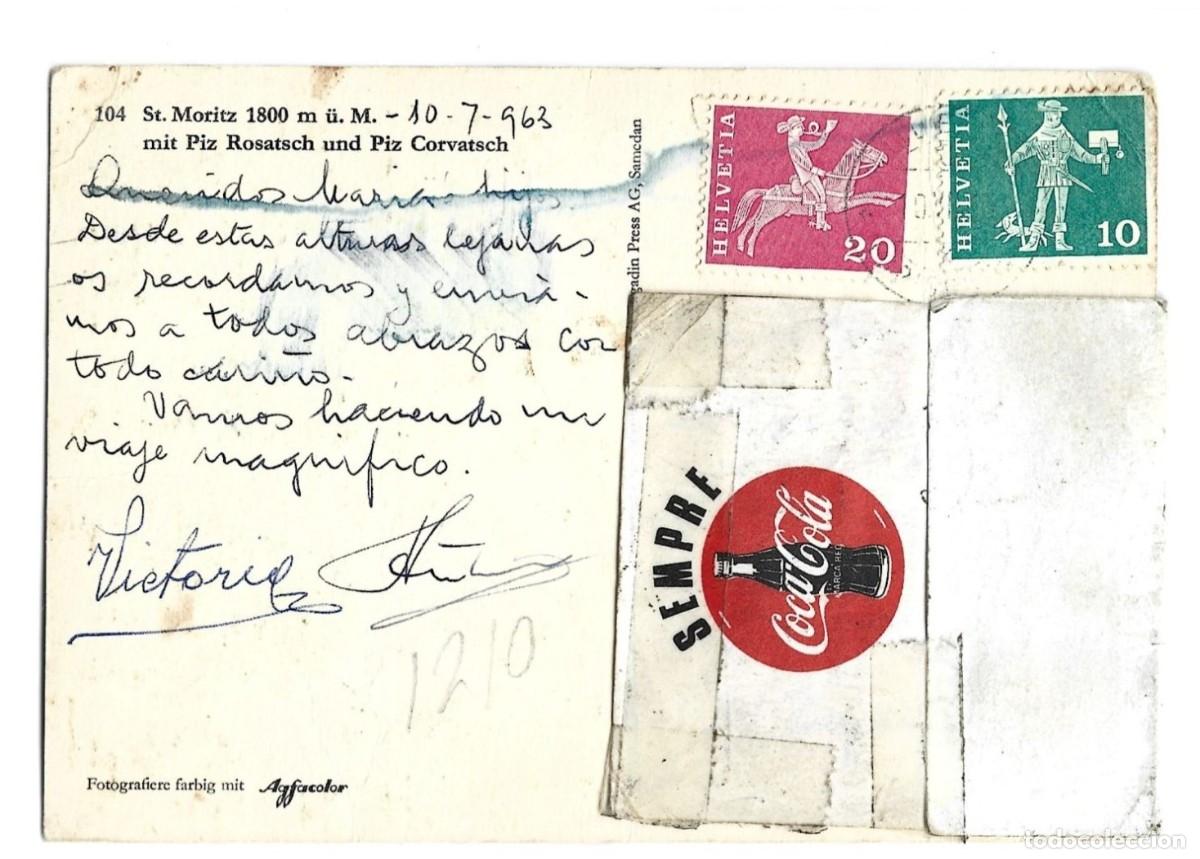 104 St. Moritz 1800 m ü. M. - 10-7-963
mit Piz Rosatsch und Piz Corvatsch
Queridos María e hijos
Desde estas alturas lejanas
os recordamos y enviá-
mos a todos abrazos con
todo cariño.
Vamos haciendo un
viaje magnífico.
Victoria
1210
Fotografiere farbig mit Agfacolor
gadin Press AG, Samedan
HELVETIA
20
HELVETIA
10
SEMPRE
Coca-Cola
MARCA REG
todocoleccion